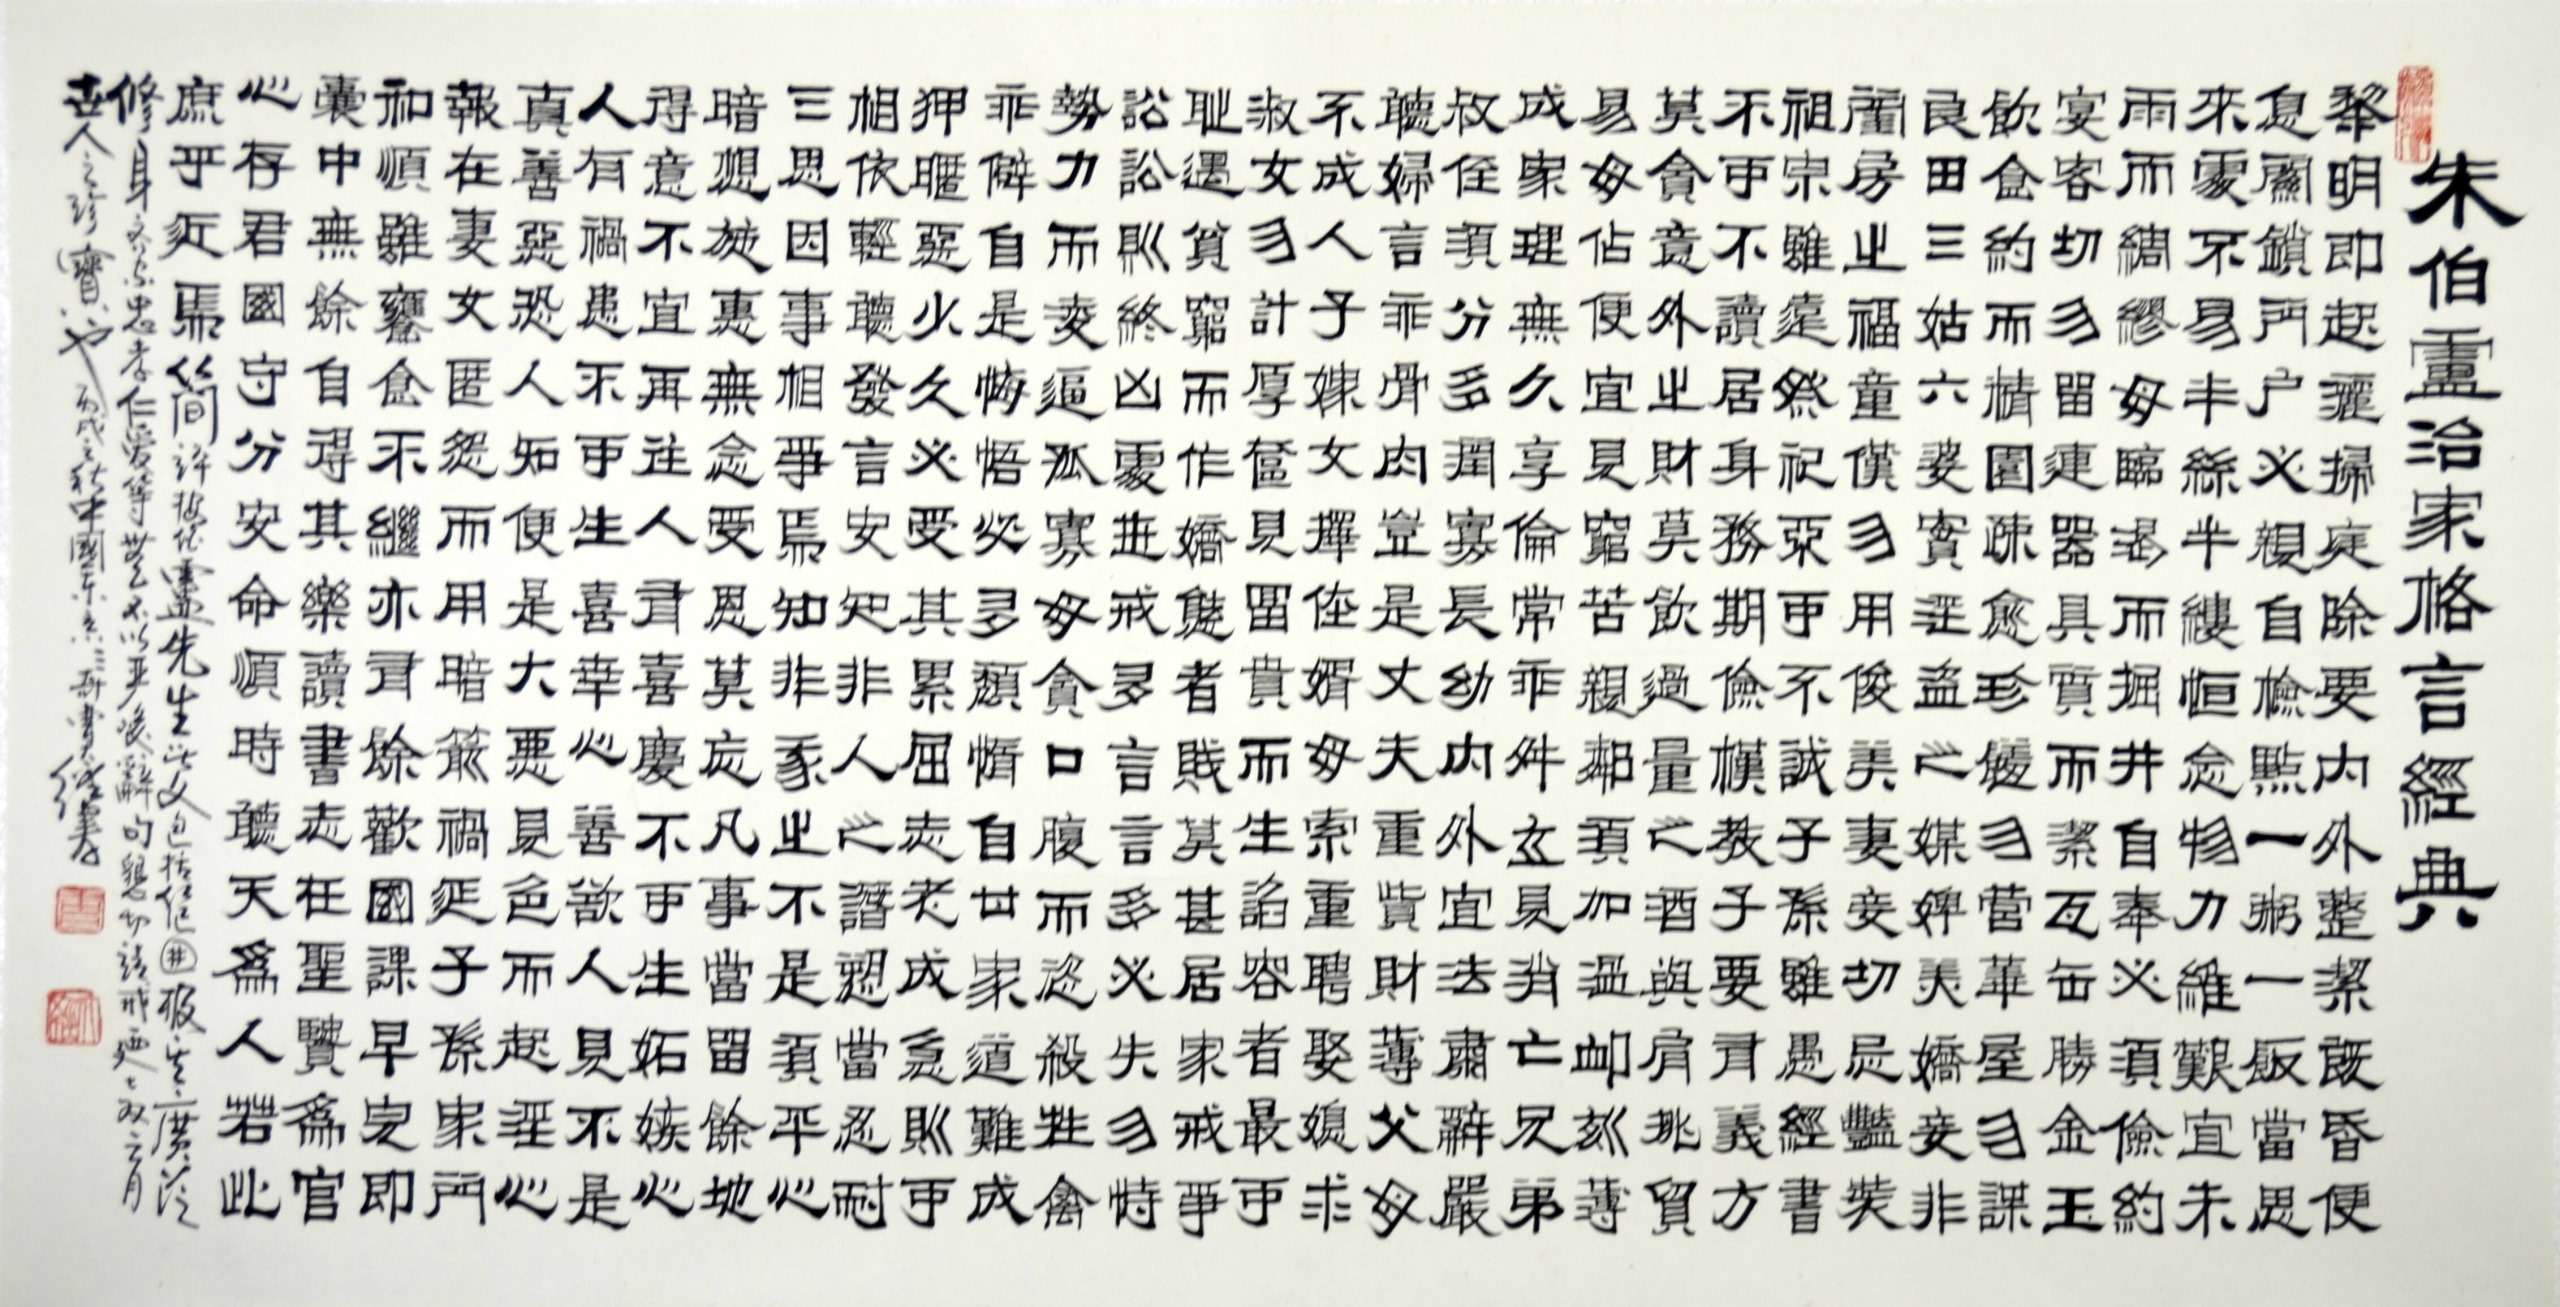 朱伯盧治家格言經典
黎明即起灑掃庭除要內外整潔既昏便
息關鎖門户必親自檢點一粥一飯當思
來處不易半絲半縷恒念物力維艱宜未
雨而綢繆毋臨渴而掘井自奉必須儉約
宴客切勿留連器具質而潔瓦缶勝金玉
飲食約而精園蔬愈珍饈勿營華屋勿謀
良田三姑六婆實淫盜之媒婢美嬌妾非
閨房之福童僕勿用俊美妻妾切忌艷裝
祖宗雖遠祭祀不可不誠子孫雖愚經書
不可不讀居身務期儉樸教子要有義方
莫貪意外之財莫飲過量之酒與肩挑貿
易毋佔便宜見窮苦親鄰須加溫卹刻薄
成家理無久享倫常乖舛立見消亡兄弟
叔侄須分多潤寡長幼內外宜法肅辭嚴
聽婦言乖骨肉豈是丈夫重貲財薄父母
不成人子嫁女擇佳婿毋索重聘娶媳求
淑女勿計厚奩見富貴而生諂容者最可
恥遇貧窮而作驕態者賤莫甚居家戒爭
訟訟則終凶處世戒多言言多必失勿恃
勢力而凌逼孤寡毋貪口腹而恣殺牲禽
乖僻自是悔悟必多頹惰自甘家道難成
狎暱惡少久必受其累屈志老成急則可
相依輕聽發言安知非人之譖愬當忍耐
三思因事相爭焉知非我之不是須平心
暗想施惠無念受恩莫忘凡事當留餘地
得意不宜再往人有喜慶不可生妒嫉心
人有禍患不可生喜幸心善欲人見不是
真善惡恐人知便是大惡見色而起淫心
報在妻女匿怨而用暗箭禍延子孫家門
和順雖饔飧不繼亦有餘歡國課早完即
囊中無餘自得其樂讀書志在聖賢爲官
心存君國守分安命順時聽天爲人若此
庶乎近焉簡評盧先生此文包括廣泛
修身忠孝仁愛等辭句懇切
世人之珍寶也丙戌之秋中國